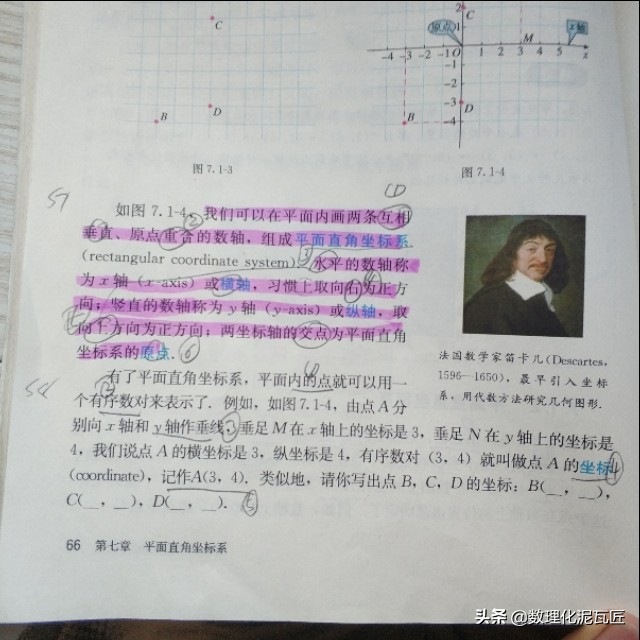 C
B
D
图 7.1-3
2
C
1
原点
x 轴
M
-4 -3 -2 -1 O 1 2 3 4 5 x
-1
-2
-3
D
B
-4
图 7.1-4
57
如图 7.1-4,我们可以在平面内画两条互相
垂直、原点重合的数轴,组成平面直角坐标系
(rectangular coordinate system). 水平的数轴称
为 x 轴 (x-axis) 或横轴,习惯上取向右为正方
向;竖直的数轴称为 y 轴 (y-axis) 或纵轴,取
向上方向为正方向;两坐标轴的交点为平面直角
坐标系的原点.
法国数学家笛卡儿(Descartes,
1596—1650),最早引入坐标
系,用代数方法研究几何图形.
58
有了平面直角坐标系,平面内的点就可以用一
个有序数对来表示了. 例如,如图 7.1-4,由点 A 分
别向 x 轴和 y 轴作垂线,垂足 M 在 x 轴上的坐标是 3,垂足 N 在 y 轴上的坐标是
4,我们说点 A 的横坐标是 3,纵坐标是 4,有序数对 (3,4) 就叫做点 A 的坐标
(coordinate),记作A(3,4). 类似地,请你写出点 B,C,D 的坐标:B(_,_),
C(_,_),D(_,_).
66 第七章 平面直角坐标系
头条 @数理化泥瓦匠